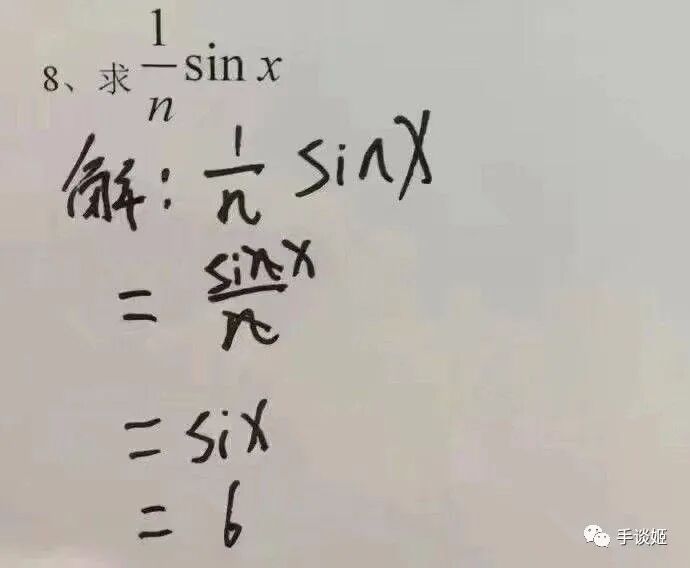 8、求 1/n sin x
解: 1/n sinx
= sinx/n
= six
= 6
手谈姬